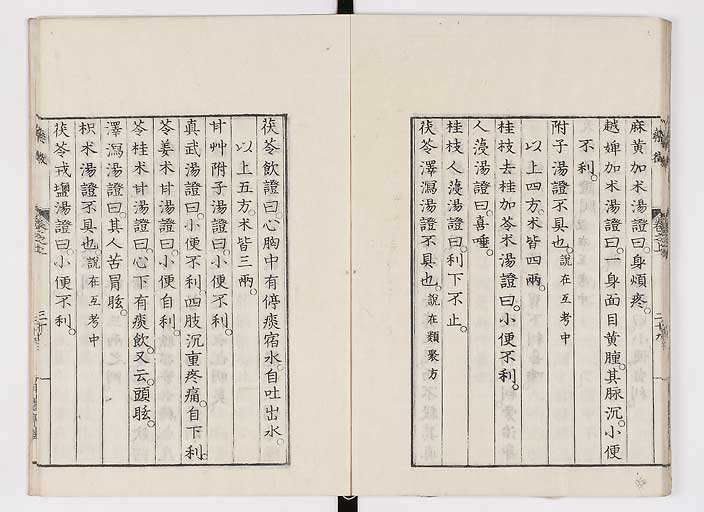 麻黃加朮湯證曰。身煩疼。
越婢加朮湯證曰。一身面目黃腫。其脉沉。小便
不利。
附子湯證不具也。說在互考中
以上四方。朮皆四兩。
桂枝去桂加苓朮湯證曰。小便不利。
人薓湯證曰。喜唾。
桂枝人薓湯證曰。利下不止。
茯苓澤瀉湯證不具也。說在類聚方
茯苓飲證曰。心胸中有停痰宿水。自吐出水。
以上五方。朮皆三兩。
甘艸附子湯證曰。小便不利。
真武湯證曰。小便不利。四肢沉重疼痛。自下利。
苓姜朮甘湯證曰。小便自利。
苓桂朮甘湯證曰。心下有痰飲。又云。頭眩。
澤瀉湯證曰。其人苦冒眩。
枳朮湯證不具也。說在互考中
茯苓戎鹽湯證曰。小便不利。
藥徵
卷之上
三十